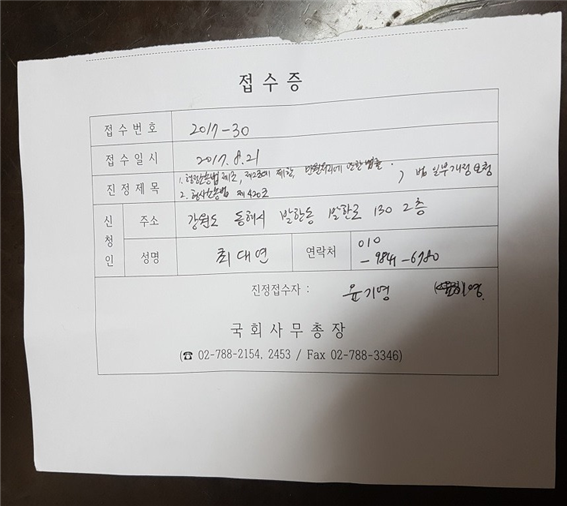 접수증
접수번호 2017-30
접수일시 2017. 8. 21
진정제목 1. 행정소송법 제2조, 제1항, 민원처리에 관한 법률. , 법 일부개정 요청
2. 형사소송법 제420조
신청인 주소 강원도 동해시 발한동 발한로 130 2층
성명 최대연 연락처 010
-9841-6980
진정접수자 : 윤기영
국회사무총장
(☎ 02-788-2154, 2453 / Fax 02-788-3346)